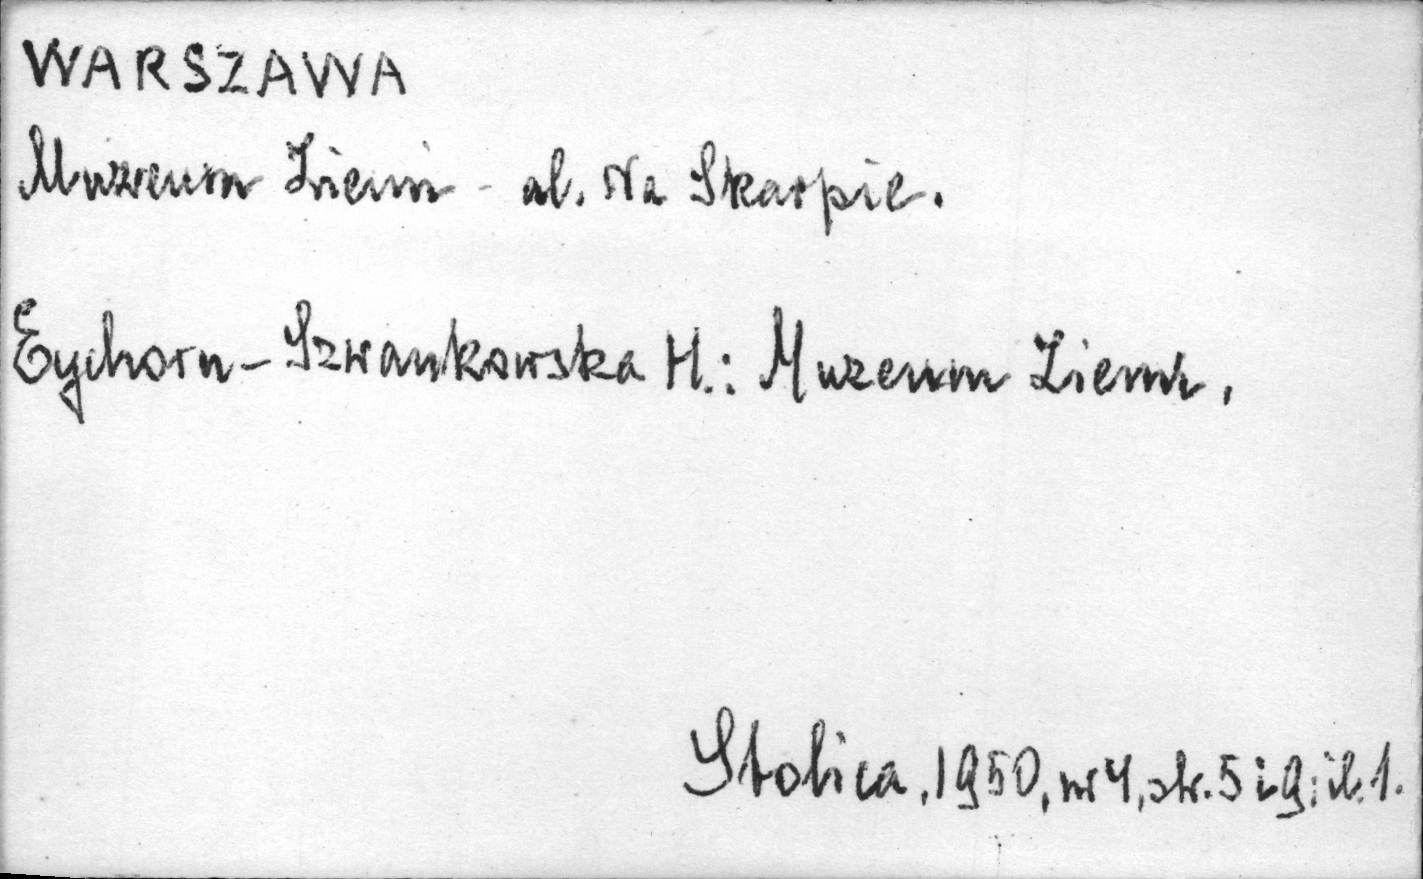 WARSZAWA
Muzeum Ziemi - al. Na Skarpie.
Eychorn-Szwankowska H.: Muzeum Ziemi,
Stolica, 1950, nr 4, str. 5 i 9; il. 1.